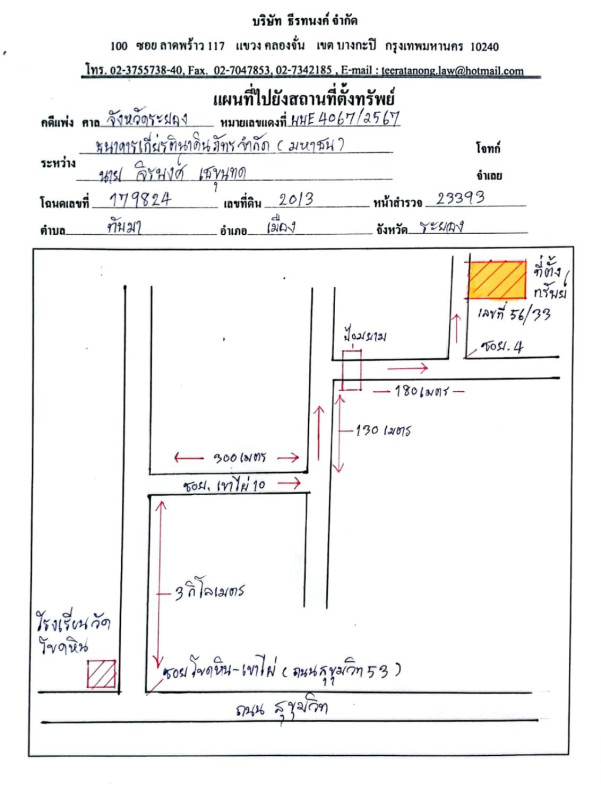 บริษัท ธีรทนงค์ จำกัด
100 ซอย ลาดพร้าว 117 แขวง คลองจั่น เขต บางกะปิ กรุงเทพมหานคร 10240
โทร. 02-3755738-40, Fax. 02-7047853, 02-7342185 , E-mail : teeratanong.law@hotmail.com
แผนที่ไปยังสถานที่ตั้งทรัพย์
คดีแพ่ง ศาล จังหวัดระยอง หมายเลขแดงที่ ผบE4067/2567
ธนาคารเกียรตินาคินภัทรจำกัด (มหาชน) โจทก์
ระหว่าง
นาย จิรพงศ์ จำเลย
โฉนดเลขที่ 179824 เลขที่ดิน 2013 หน้าสำรวจ 23393
ตำบล ทับมา อำเภอ เมือง จังหวัด ระยอง
ที่ตั้ง
ทรัพย์
เลขที่ 56/33
ป้อมยาม
ซอย.4
180 เมตร
130 เมตร
300 เมตร
ซอย.เขาไผ่ 10
3 กิโลเมตร
โรงเรียนวัด
โขดหิน
ซอยโขดหิน-เขาไผ่ (ถนนสุขุมวิท 53)
ถนน สุขุมวิท